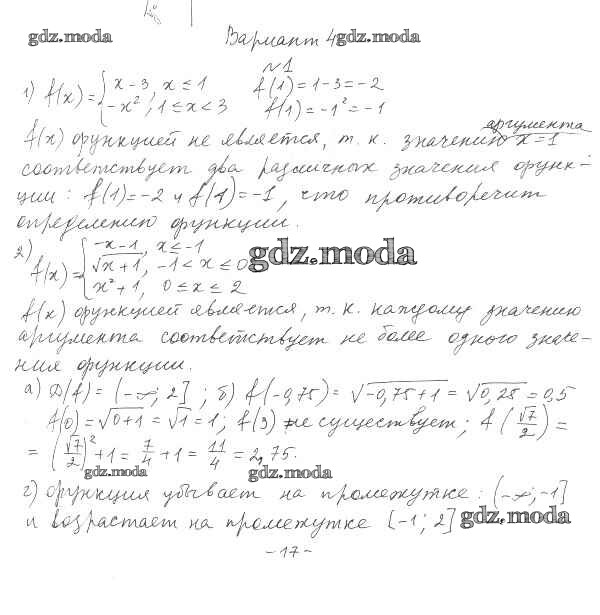 gdz.moda Вариант 4 gdz.moda
№1
1) f(x) = { x-3, x ≤ 1 f(1) = 1-3 = -2
-x², 1 ≤ x < 3 f(1) = -1² = -1
аргумента
f(x) функцией не является, т. к. значению x=1
соответствует два различных значения функ-
ции: f(1) = -2 и f(1) = -1, что противоречит
определению функции.
2) -x-1, x ≤ -1
f(x) = { √x+1, -1 < x ≤ 0 gdz.moda
x²+1, 0 ≤ x ≤ 2
f(x) функцией является, т. к. каждому значению
аргумента соответствует не более одного значе-
ния функции.
а) D(f) = (-∞; 2] ; б) f(-0,75) = √-0,75+1 = √0,25 = 0,5
f(0) = √0+1 = √1 = 1; f(3) не существует; f(√7/2) =
= (√7/2)² + 1 = 7/4 + 1 = 11/4 = 2,75.
gdz.moda gdz.moda
г) функция убывает на промежутке: (-∞; -1]
и возрастает на промежутке [-1; 2] gdz.moda
-17-